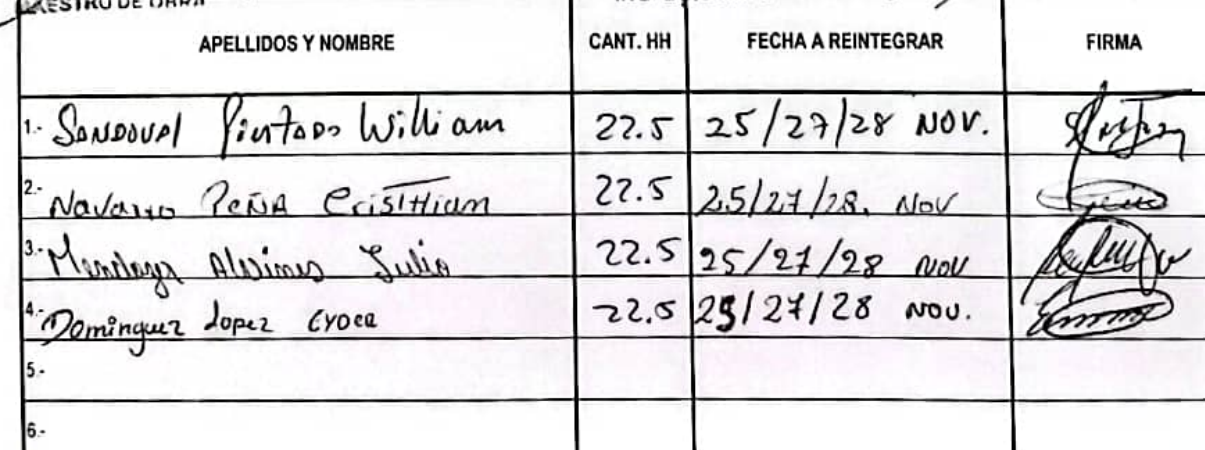 MAESTRO DE OBRA
APELLIDOS Y NOMBRE CANT. HH FECHA A REINTEGRAR FIRMA
1.- SANDOVAl Pintado William 22.5 25/27/28 NOV.
2.- Navarro PEÑA CrisTHiam 22.5 25/27/28. NOV
3.- Julio 22.5 25/27/28 NOV
4.- Dominguez Lopez 22.5 25/27/28 NOV.
5.-
6.-